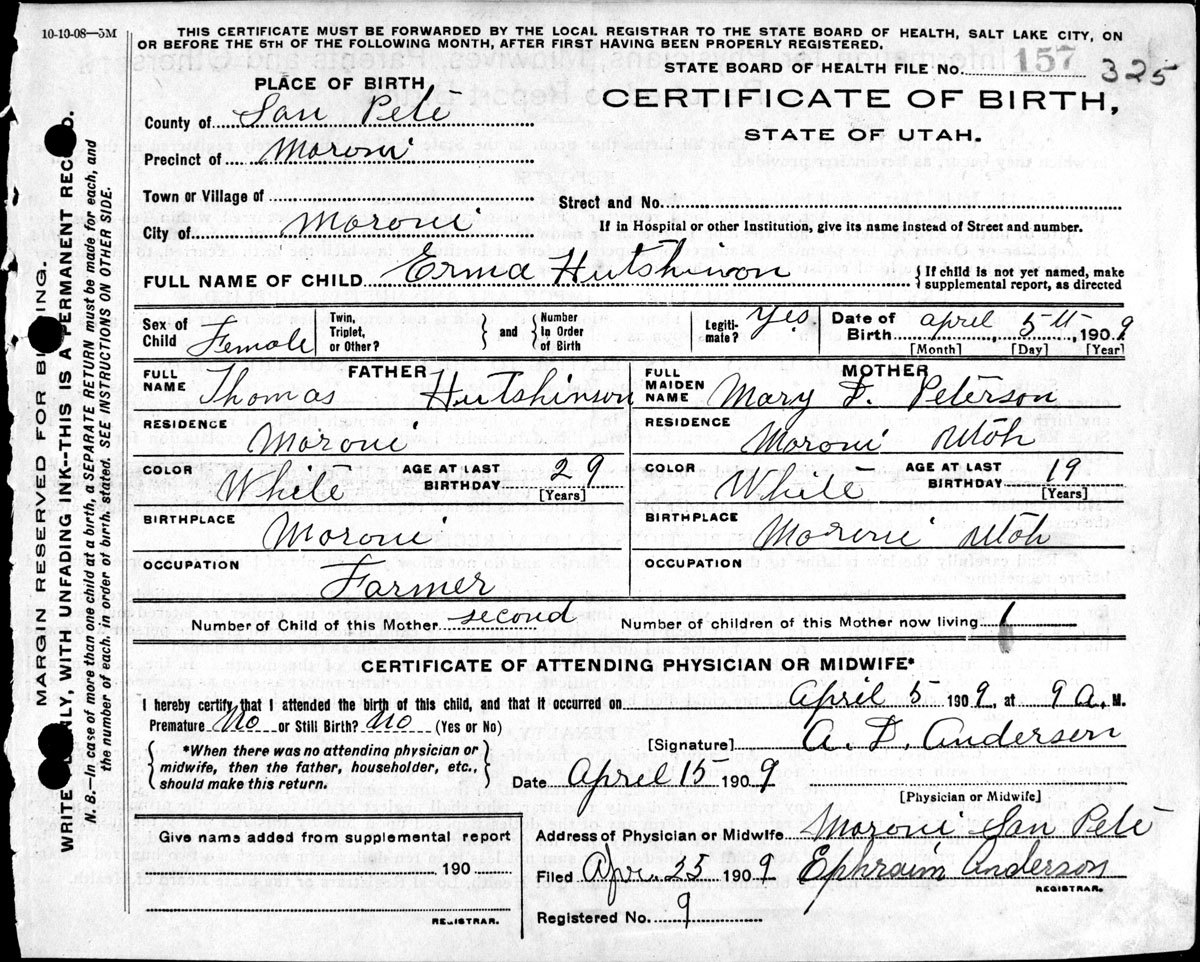 10-10-08—5M
THIS CERTIFICATE MUST BE FORWARDED BY THE LOCAL REGISTRAR TO THE STATE BOARD OF HEALTH, SALT LAKE CITY, ON
OR BEFORE THE 5TH OF THE FOLLOWING MONTH, AFTER FIRST HAVING BEEN PROPERLY REGISTERED.
STATE BOARD OF HEALTH FILE NO. 157 325
PLACE OF BIRTH
CERTIFICATE OF BIRTH,
STATE OF UTAH.
County of San Pete
Precinct of Moroni
Town or Village of
Street and No.
City of Moroni
If in Hospital or other Institution, give its name instead of Street and number.
FULL NAME OF CHILD Erma Hutshinson
{If child is not yet named, make
supplemental report, as directed
Sex of Child Female
Twin, Triplet, or Other?
and
Number in Order of Birth
Legiti-mate? Yes
Date of Birth April 5th, 1909
[Month] [Day] [Year]
FATHER
FULL NAME Thomas Hutshinson
RESIDENCE Moroni
COLOR White
AGE AT LAST BIRTHDAY 29
[Years]
BIRTHPLACE Moroni
OCCUPATION Farmer
MOTHER
FULL MAIDEN NAME Mary D. Peterson
RESIDENCE Moroni Utah
COLOR White
AGE AT LAST BIRTHDAY 19
[Years]
BIRTHPLACE Moroni Utah
OCCUPATION
Number of Child of this Mother second
Number of children of this Mother now living 1
CERTIFICATE OF ATTENDING PHYSICIAN OR MIDWIFE*
I hereby certify that I attended the birth of this child, and that it occurred on April 5 1909, at 9 a. M.
Premature No or Still Birth? No (Yes or No)
*When there was no attending physician or
midwife, then the father, householder, etc.,
should make this return.
[Signature] A. D. Andersen
Date April 15 1909
[Physician or Midwife]
Give name added from supplemental report
190
REGISTRAR.
Address of Physician or Midwife Moroni San Pete
Filed Apr. 25 1909 Ephraim Anderson
REGISTRAR.
Registered No. 9
MARGIN RESERVED FOR BINDING.
WRITE ONLY, WITH UNFADING INK--THIS IS A PERMANENT RECORD.
N. B.—In case of more than one child at a birth, a SEPARATE RETURN must be made for each, and
the number of each, in order of birth, stated. SEE INSTRUCTIONS ON OTHER SIDE.